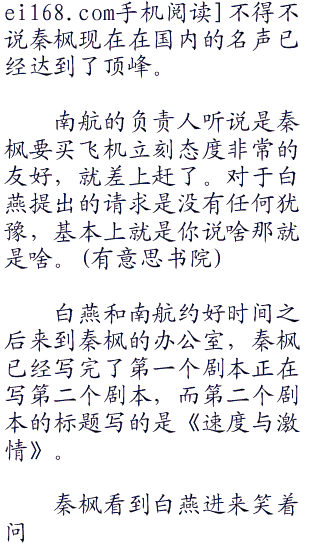 ei168.com手机阅读]不得不
说秦枫现在在国内的名声已
经达到了顶峰。
南航的负责人听说是秦
枫要买飞机立刻态度非常的
友好，就差上赶了。对于白
燕提出的请求是没有任何犹
豫，基本上就是你说啥那就
是啥。(有意思书院)
白燕和南航约好时间之
后来到秦枫的办公室，秦枫
已经写完了第一个剧本正在
写第二个剧本，而第二个剧
本的标题写的是《速度与激
情》。
秦枫看到白燕进来笑着
问